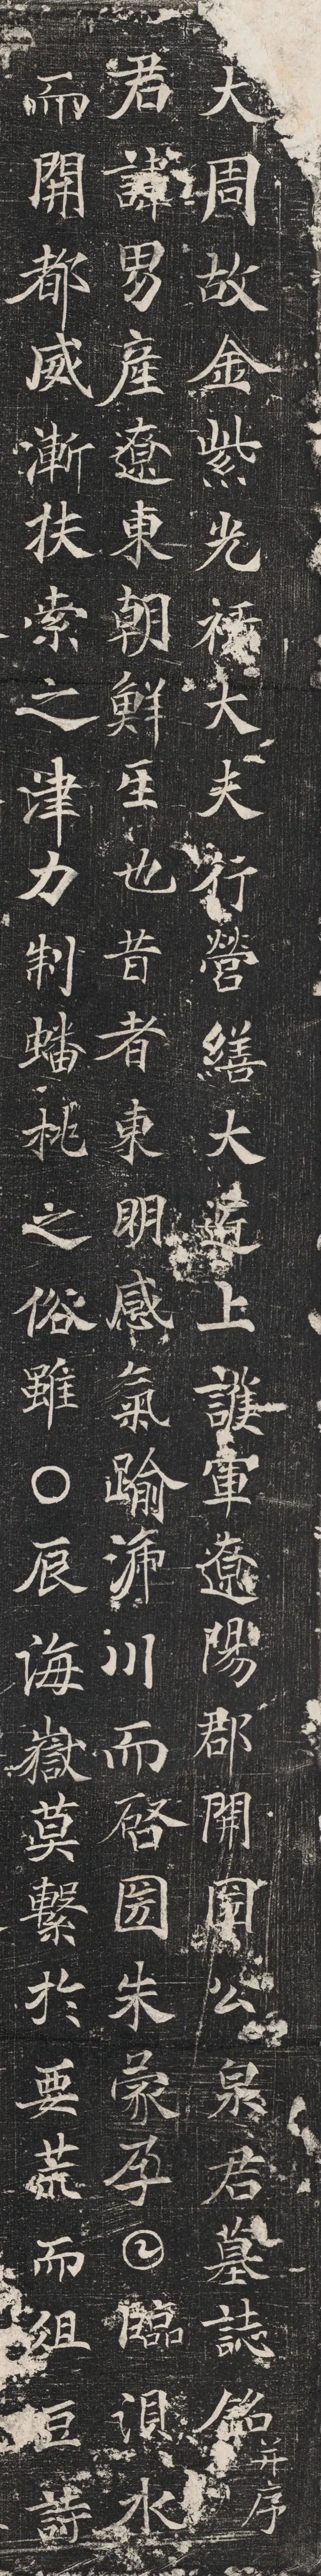 大周故金紫光祿大夫行營繕大匠上護軍遼陽郡開圀公泉君墓誌銘并序
君諱男產遼東朝鮮𤯔也昔者東明感氣踰㴲川而啓圀朱蒙孕𡆠臨浿水
而開都威漸扶索之津力制蟠桃之俗雖〇辰海嶽莫繫於要荒而俎豆詩